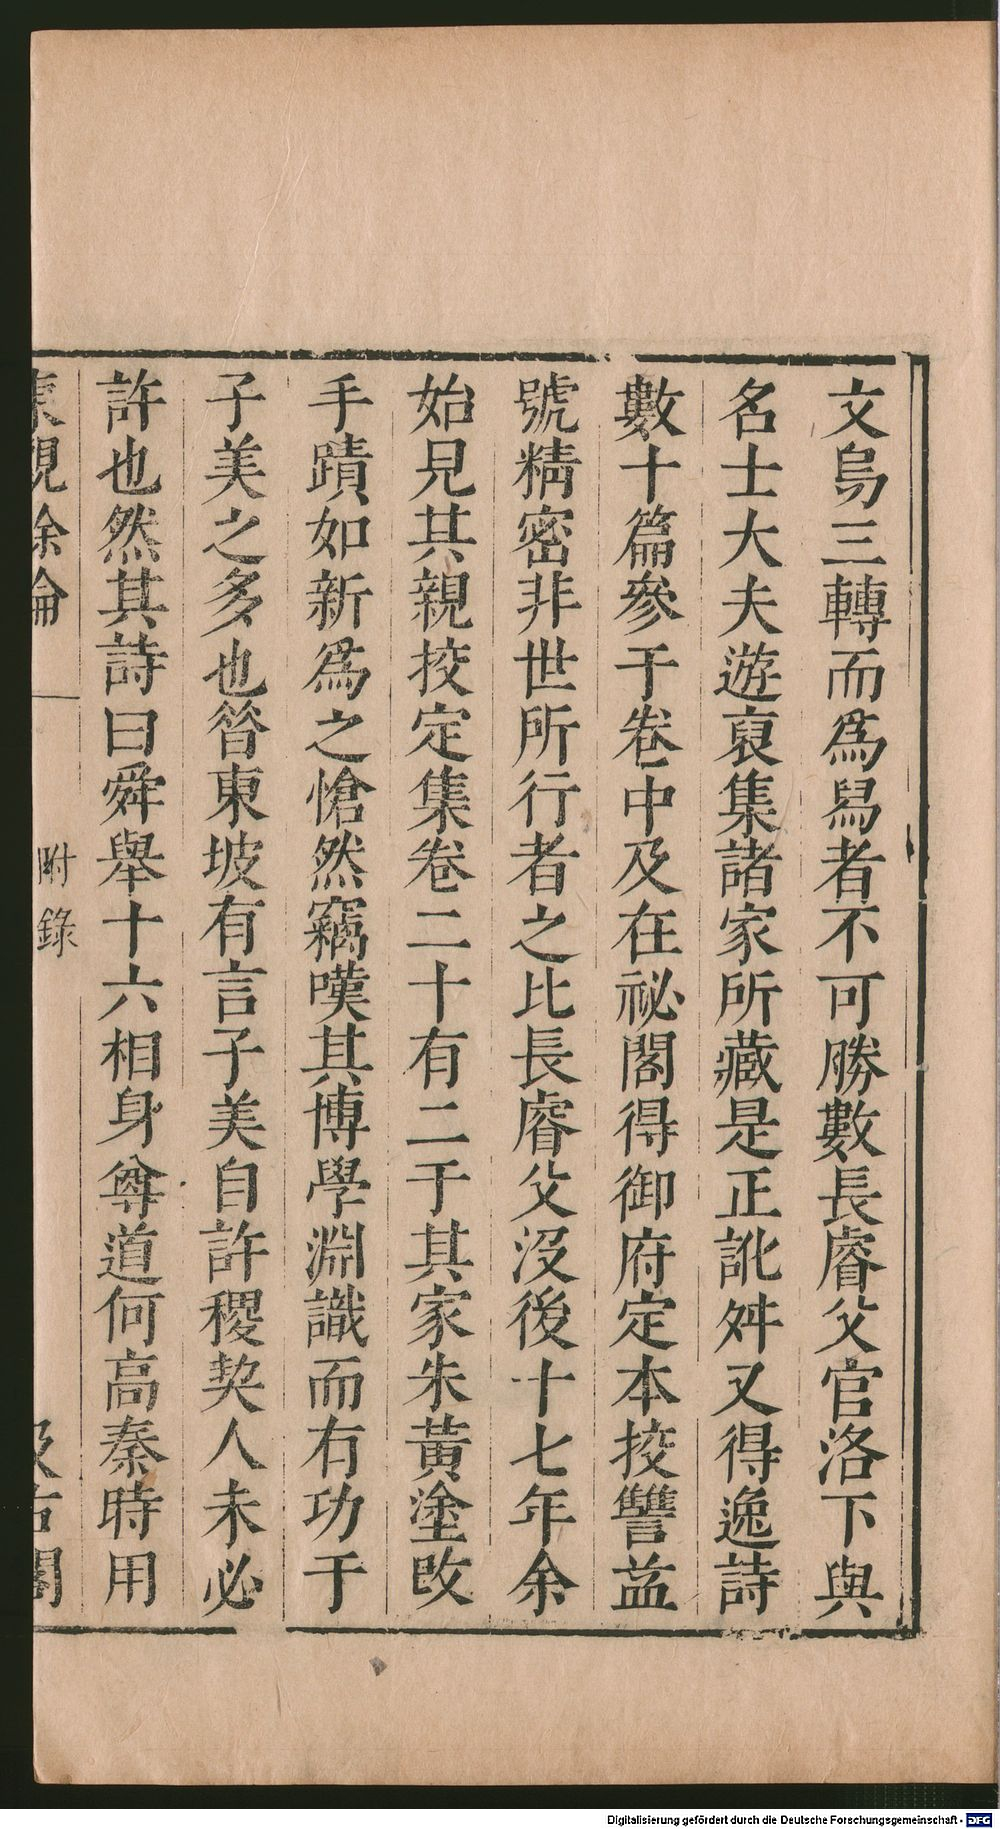 文烏三轉而爲舄者不可勝數長睿父官洛下與
名士大夫遊裒集諸家所藏是正訛舛又得逸詩
數十篇參于卷中及在祕閣得御府定本挍讐益
號精密非世所行者之比長睿父沒後十七年余
始見其親挍定集卷二十有二于其家朱黃塗改
手蹟如新爲之愴然竊嘆其博學淵識而有功于
子美之多也昝東坡有言子美自許稷契人未必
許也然其詩曰舜舉十六相身尊道何高秦時用
東觀餘論 附錄 汲古閣
Digitalisierung gefördert durch die Deutsche Forschungsgemeinschaft - DFG